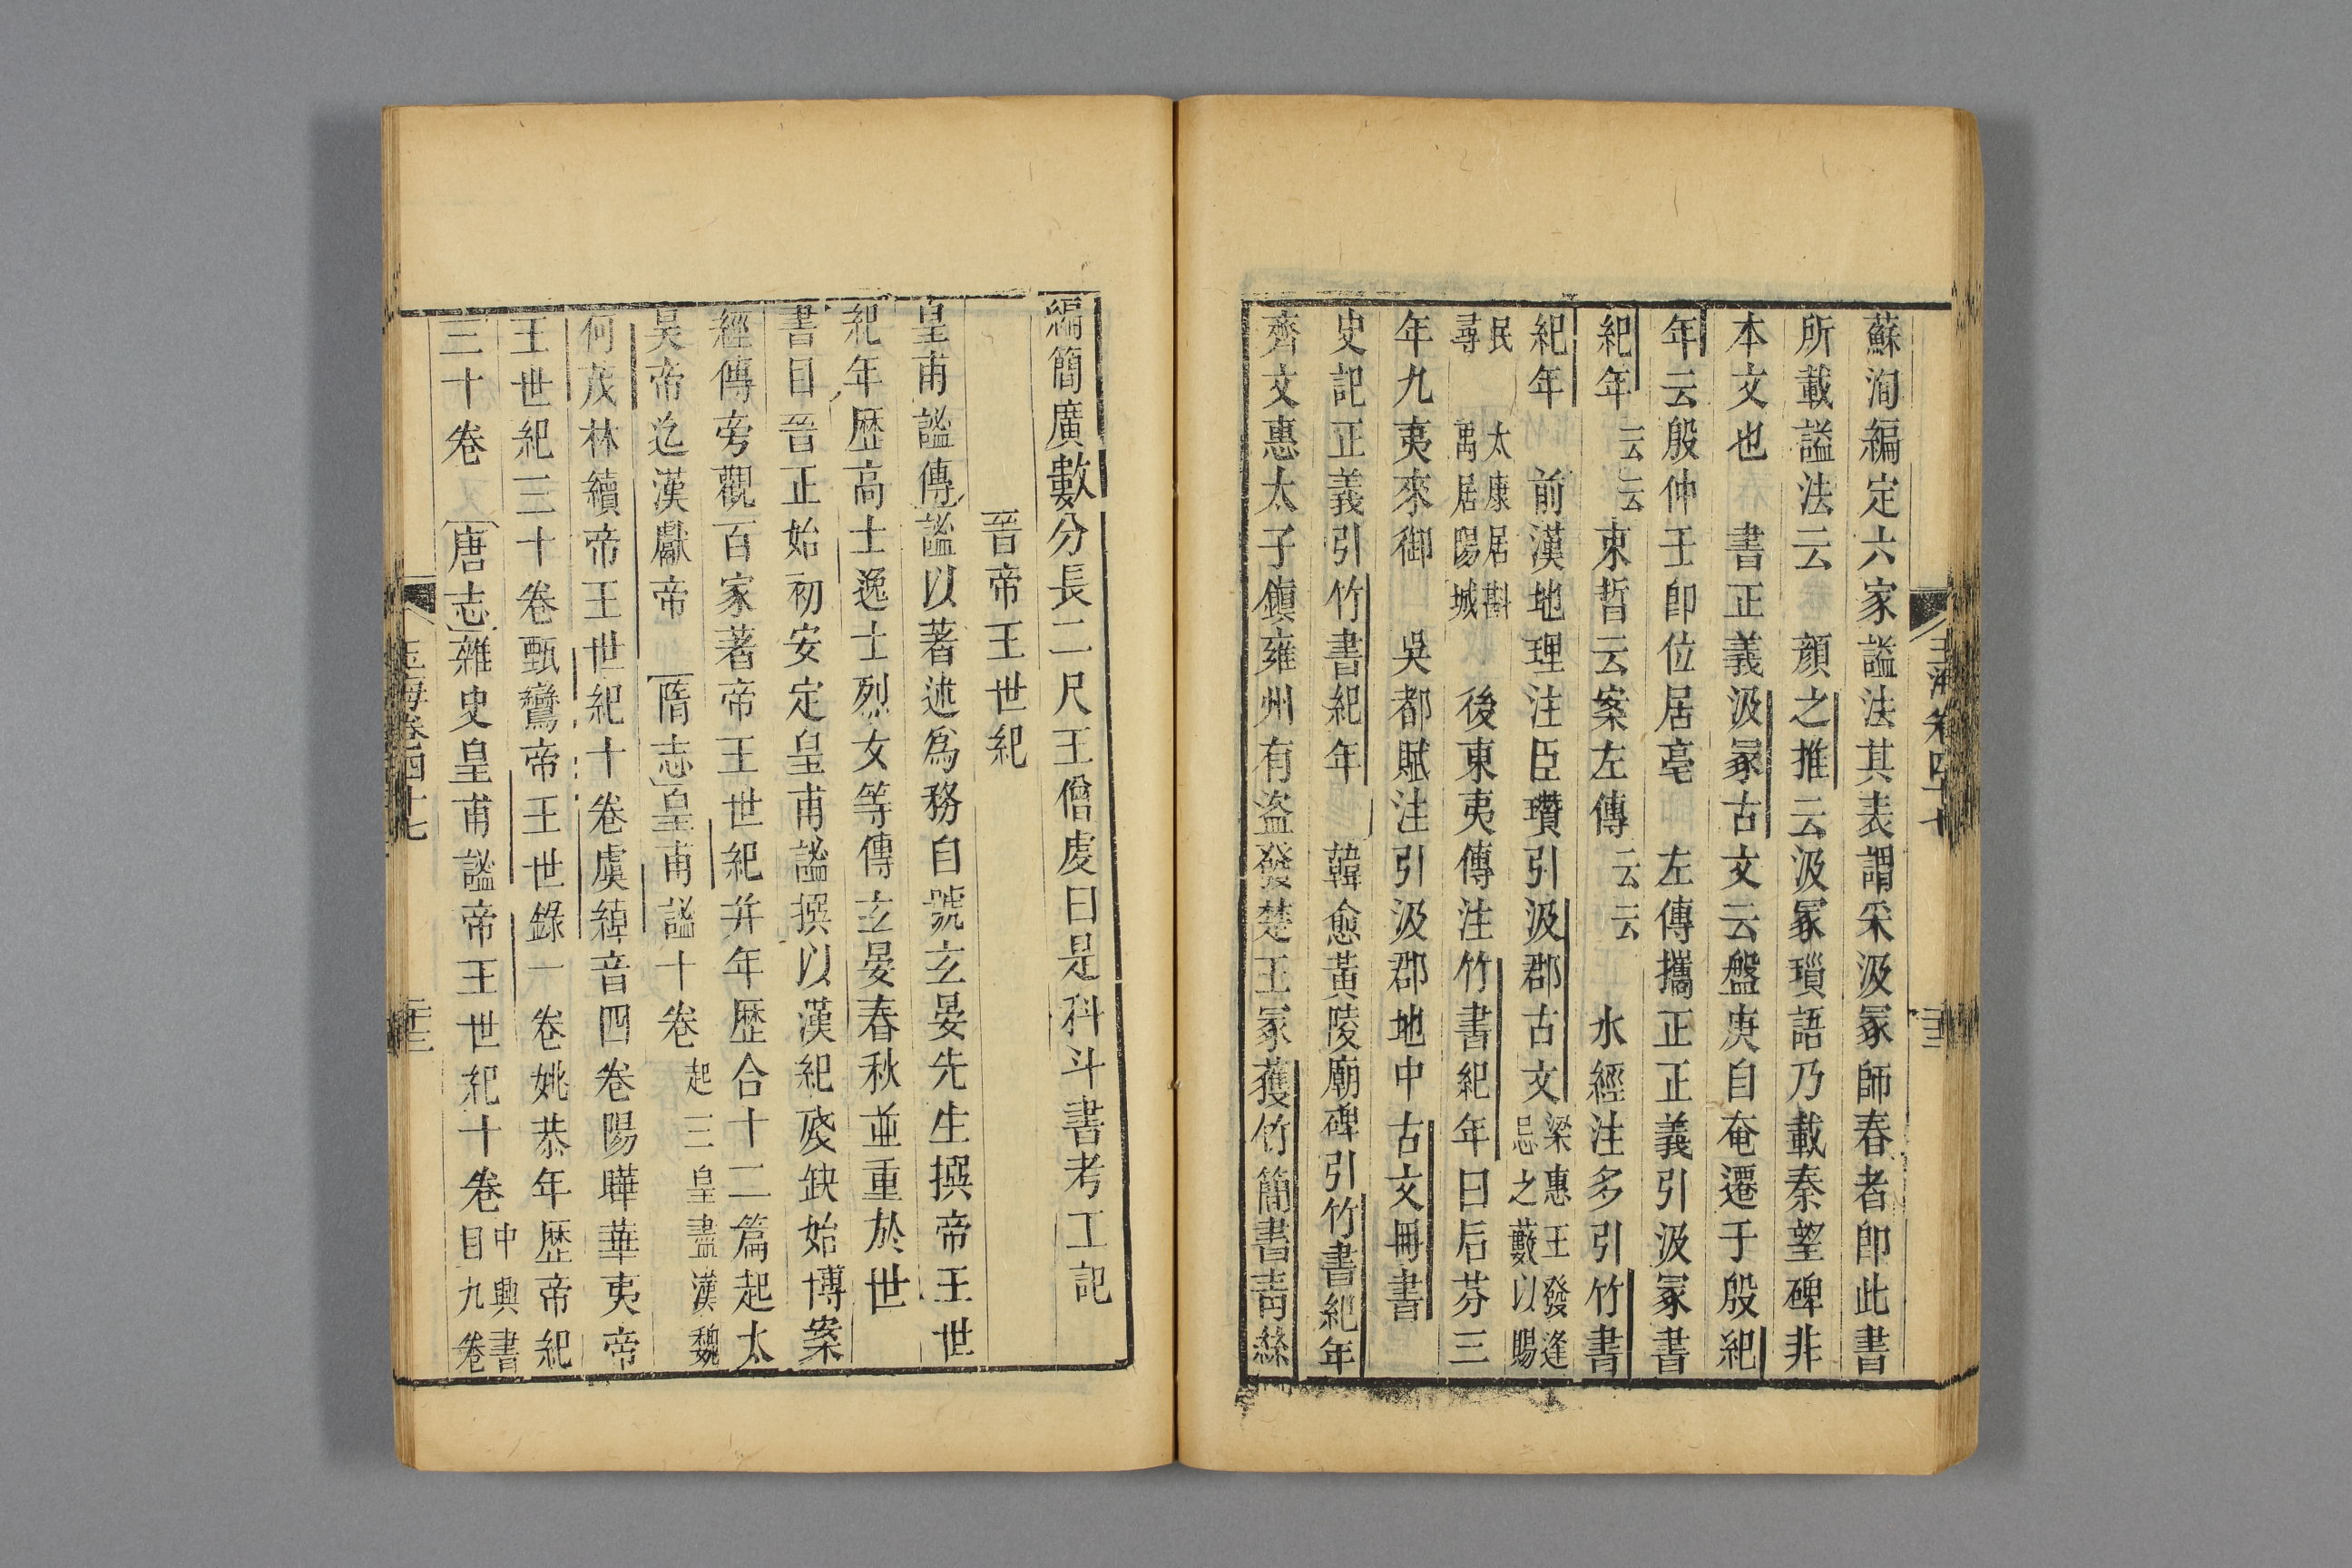 蘇洵編定六家謚法其表謂采汲冢師春者卽此書
所載謚法云　顏之推云汲冢瑣語乃載秦望碑非
本文也　書正義汲冢古文云盤庚自奄遷于殷紀
年云殷仲壬卽位居亳　左傳攜正正義引汲冢書
紀年云云束晳云案左傳云云　水經注多引竹書
紀年　前漢地理注臣瓚引汲郡古文梁惠王發逢忌之藪以賜
民　太康居斟尋　禹居陽城　後東夷傳注竹書紀年曰后芬三
年九夷來御　吳都賦注引汲郡地中古文冊書
史記正義引竹書紀年　韓愈黃陵廟碑引竹書紀年
齊文惠太子鎭雍州有盜發楚王冢獲竹簡書青絲
玉海卷四十七
編簡廣數分長二尺王僧虔曰是科斗書考工記
晉帝王世紀
皇甫謐傳謐以著述爲務自號玄晏先生撰帝王世
紀年歷高士逸士烈女等傳玄晏春秋並重於世
書目晉正始初安定皇甫謐撰以漢紀殘缺始博案
經傳旁觀百家著帝王世紀并年歷合十二篇起太
昊帝迄漢獻帝　隋志皇甫謐十卷起三皇盡漢魏
何茂林續帝王世紀十卷虞綽音四卷陽曄華夷帝
王世紀三十卷甄鸞帝王世錄一卷姚恭年歷帝紀
三十卷　唐志雜史皇甫謐帝王世紀十卷中興書目九卷
玉海卷四十七